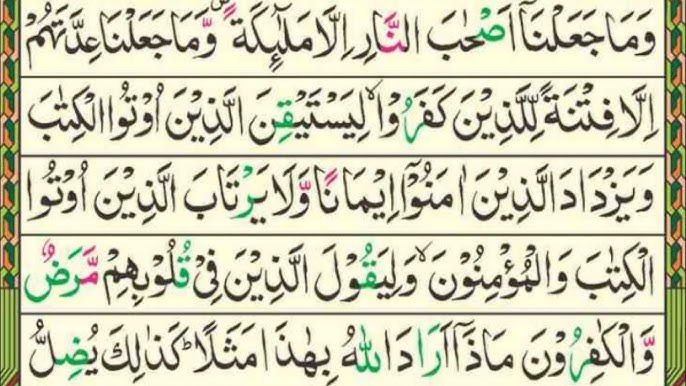 وَمَا جَعَلْنَآ اَصْحٰبَ النَّارِ اِلَّا مَلٰٓئِكَةً ۪ وَّمَا جَعَلْنَا عِدَّتَهُمْ
اِلَّا فِتْنَةً لِّلَّذِيْنَ كَفَرُوْا ۙ لِيَسْتَيْقِنَ الَّذِيْنَ اُوْتُوا الْكِتٰبَ
وَيَزْدَادَ الَّذِيْنَ اٰمَنُوْٓا اِيْمَانًا وَّلَا يَرْتَابَ الَّذِيْنَ اُوْتُوا
الْكِتٰبَ وَالْمُؤْمِنُوْنَ ۙ وَلِيَقُوْلَ الَّذِيْنَ فِيْ قُلُوْبِهِمْ مَّرَضٌ
وَّالْكٰفِرُوْنَ مَاذَآ اَرَادَ اللّٰهُ بِهٰذَا مَثَلًا ؕ كَذٰلِكَ يُضِلُّ